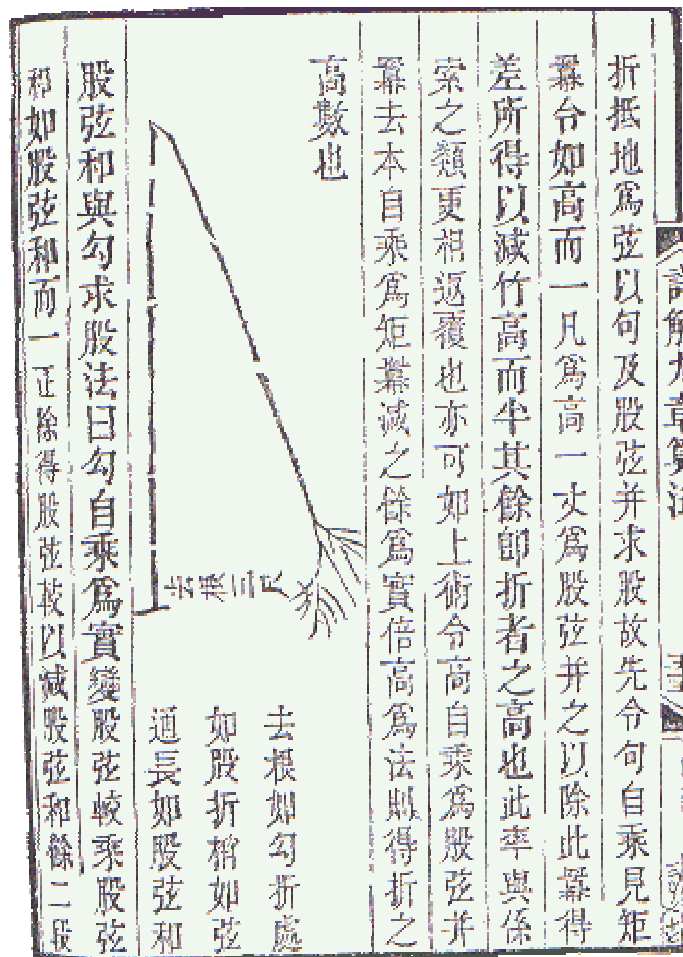 詳解九章算法
折抵地爲弦以句及股弦并求股故先令句自乘見矩
羃令如高而一凡爲高一丈爲股弦并之以除此羃得
差所得以減竹高而半其餘卽折者之高也此率與係
索之類更相返覆也亦可如上術令高自乘爲股弦并
羃去本自乘爲矩羃減之餘爲實倍高爲法則得折之
高數也
去根如勾折處
如股折梢如弦
通長如股弦和
去根三尺
股弦和與勾求股法曰勾自乘爲實變股弦較乘股弦
和如股弦和而一正除得股弦較以減股弦和餘二段